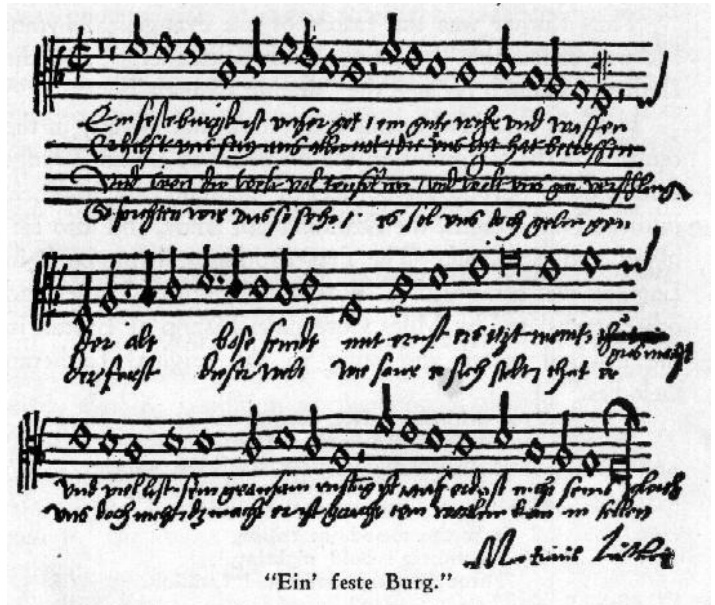 Ein feste burgk ist unser got ein gute wehr und waffen
Er hilfft uns frey aus aller not die uns itzt hat betroffen
Und wen die welt vol teufel wer und wolt uns gar verschling
So furchten wir uns so sehr es sol uns doch gelingen
der alt bose feindt mit ernst ers itzt meint
gros macht
der furst dieser welt wie saur er sich stelt that er
und viel list sein grausam rustung ist auf erd ist nicht seins gleich
uns doch nicht dz macht er ist gericht ein wortlin kan in fellen
Martinus Luther
"Ein' feste Burg."